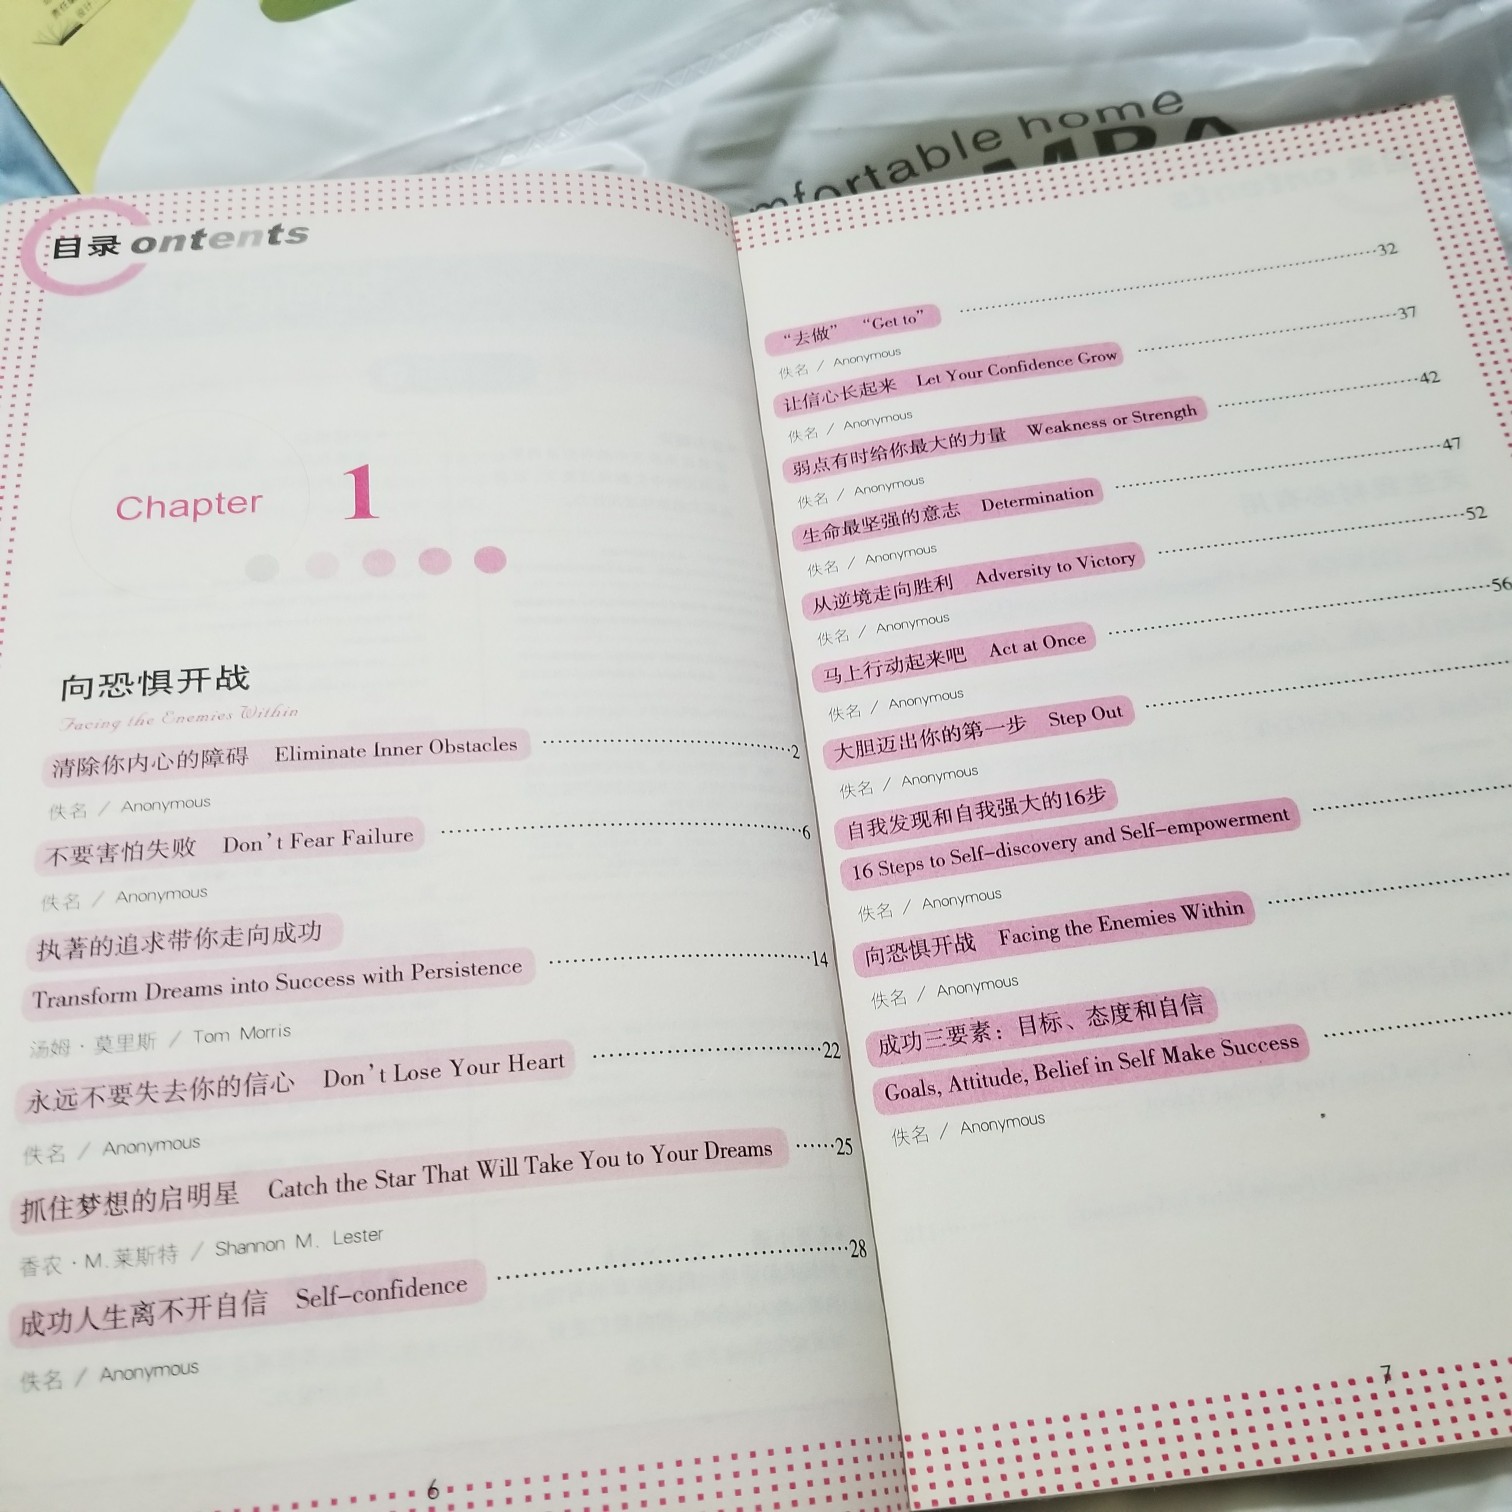 责任
设计
mfortable home
目录 Contents
Chapter 1
向恐惧开战
Facing the Enemies Within
清除你内心的障碍 Eliminate Inner Obstacles ········2
佚名 / Anonymous
不要害怕失败 Don't Fear Failure ········6
佚名 / Anonymous
执著的追求带你走向成功
Transform Dreams into Success with Persistence ········14
汤姆·莫里斯 / Tom Morris
永远不要失去你的信心 Don't Lose Your Heart ········22
佚名 / Anonymous
抓住梦想的启明星 Catch the Star That Will Take You to Your Dreams ······25
香农·M.莱斯特 / Shannon M. Lester
成功人生离不开自信 Self-confidence ········28
佚名 / Anonymous
6
“去做” “Get to” ········32
佚名 / Anonymous
让信心长起来 Let Your Confidence Grow ········37
佚名 / Anonymous
弱点有时给你最大的力量 Weakness or Strength ········42
佚名 / Anonymous
生命最坚强的意志 Determination ········47
佚名 / Anonymous
从逆境走向胜利 Adversity to Victory ········52
佚名 / Anonymous
马上行动起来吧 Act at Once ········56
佚名 / Anonymous
大胆迈出你的第一步 Step Out ········
佚名 / Anonymous
自我发现和自我强大的16步
16 Steps to Self-discovery and Self-empowerment ········
佚名 / Anonymous
向恐惧开战 Facing the Enemies Within ········
佚名 / Anonymous
成功三要素：目标、态度和自信
Goals, Attitude, Belief in Self Make Success ········
佚名 / Anonymous
7